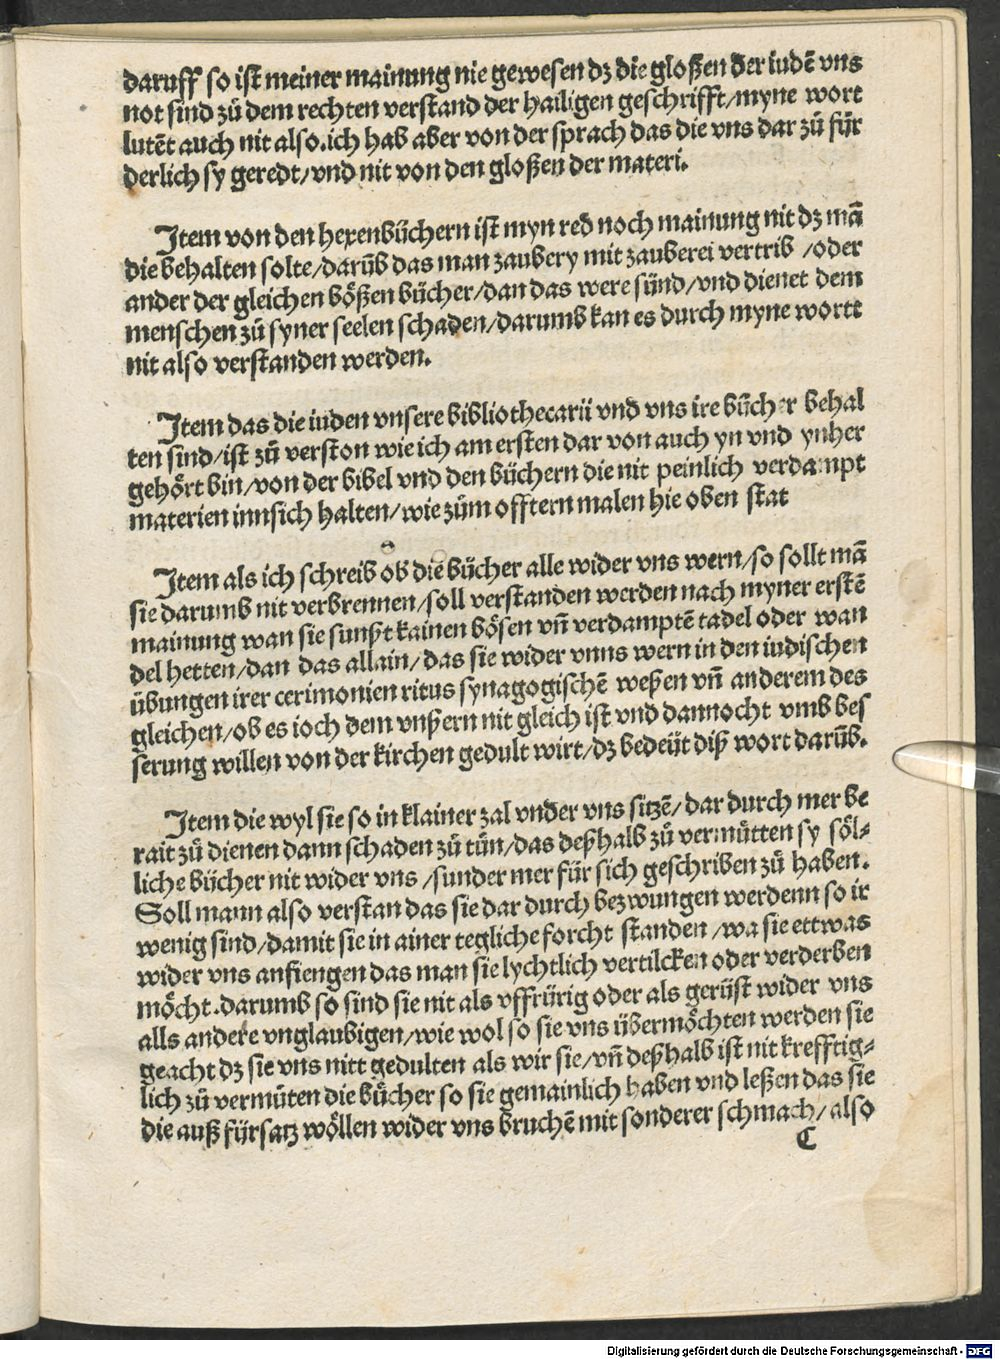 daruff so ist meiner mainung nie gewesen dz die gloßen der iudē vns
not sind zů dem rechten verstand der hailigen geschrifft/myne wort
lutēt auch nit also.ich hab aber von der sprach das die vns dar zů für
derlich sy geredt/vnd nit von den gloßen der materi.
Item von den hexenbůchern ist myn red noch mainung nit dz mā
die behalten solte/darūb das man zaubery mit zauberei vertrib /oder
ander der gleichen bößen bůcher/dan das were sünd/vnd dienet dem
menschen zů syner seelen schaden/darumb kan es durch myne worte
nit also verstanden werden.
Item das die iuden vnsere bibliothecarii vnd vns ire bůcher behal
ten sind/ist zů verston wie ich am ersten dar von auch yn vnd ynher
gehört bin/von der bibel vnd den bůchern die nit peinlich verdampt
materien innsich halten/wie zům offtern malen hie oben stat
Item als ich schreib ob die bůcher alle wider vns wern/so sollt mā
sie darumb nit verbrennen/soll verstanden werden nach myner erstē
mainung wan sie sunßt kainen bösen vn̄ verdamptē tadel oder wan
del hetten/dan das allain/das sie wider vnns wern in den iudischen
übungen irer cerimonien ritus synagogischē weßen vn̄ anderem des
gleichen/ob es ioch dem vnßern nit gleich ist vnd dannocht vmb bes
serung willen von der kirchen gedult wirt/dz bedeüt diß wort darūb.
Item die wyl sie so in klainer zal vnder vns sitzē/dar durch mer be
rait zů dienen dann schaden zů tůn/das deßhalb zů vermůtten sy söl⸗
liche bůcher nit wider vns /sunder mer für sich geschriben zů haben.
Soll mann also verstan das sie dar durch bezwungen werdenn so ir
wenig sind/damit sie in ainer tegliche forcht standen /wa sie ettwas
wider vns anfiengen das man sie lychtlich vertilcken oder verderben
möcht.darumb so sind sie nit als vffrürig oder als gerüst wider vns
alls andere vnglaubigen/wie wol so sie vns übermöchten werden sie
geacht dz sie vns nitt gedulten als wir sie/vn̄ deßhalb ist nit krefftig⸗
lich zů vermůten die bůcher so sie gemainlich haben vnd leßen das sie
die auß fürsatz wöllen wider vns bruchē mit sonderer schmach/also
C
Digitalisierung gefördert durch die Deutsche Forschungsgemeinschaft - DFG